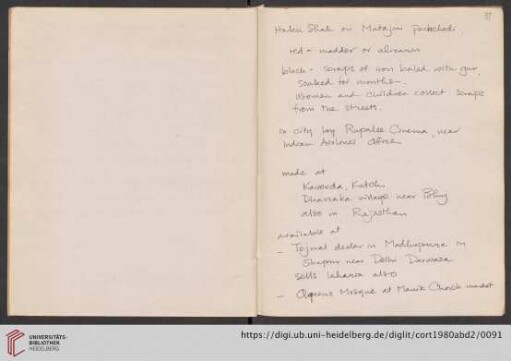 37
Haku Shah on Matajni Pachedi
red = madder or alizarin
black - scraps of iron boiled with gur,
soaked for months.
Women and children collect scraps
from the streets.
in city by Rupalee Cinema, near
Indian Airlines Office
made at
Kavada, Kutch
Dhavraka village near
also in Rajasthan
available at
- Tejmal dealer in Madhupura in
Shapur near Delhi Darwaza
sells laharia also
- Queens Mosque at Manik Chowk market
UNIVERSITÄTS-
BIBLIOTHEK
HEIDELBERG
https://digi.ub.uni-heidelberg.de/diglit/cort1980abd2/0091